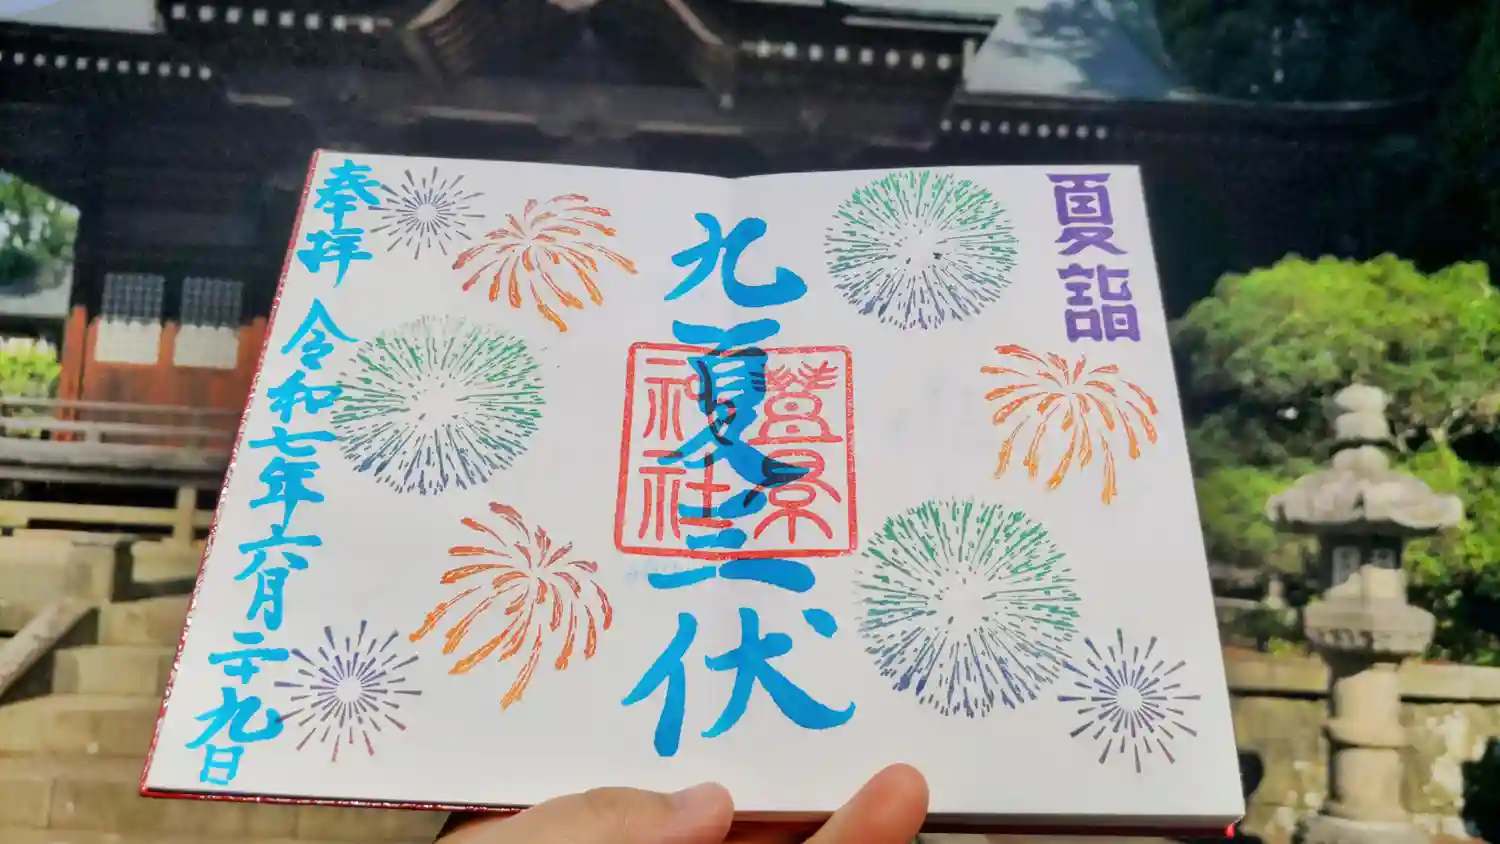 夏詣
九夏三伏
登景
神社
奉拝
令和七年六月二十九日